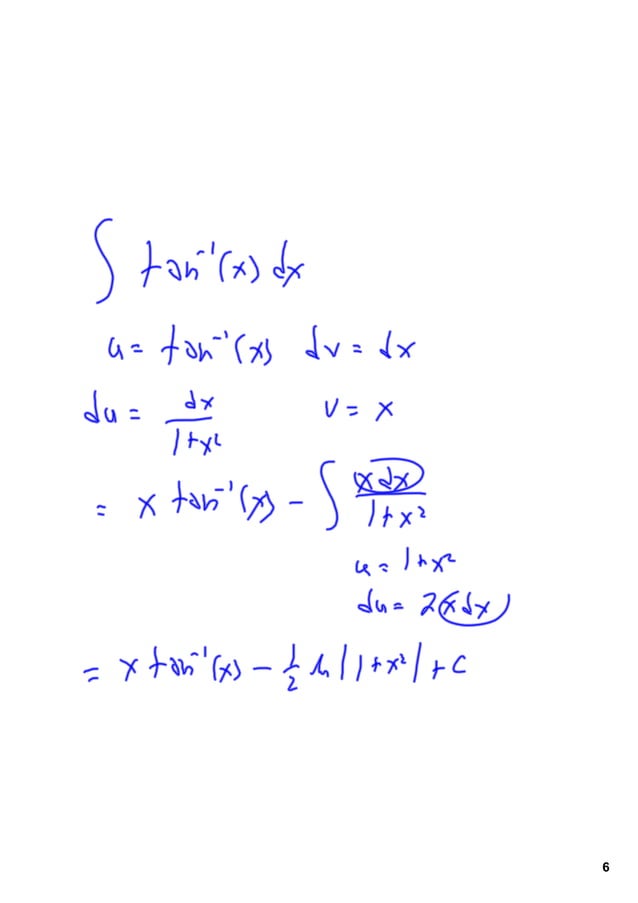 ∫ tan⁻¹(x) dx
u = tan⁻¹(x) dv = dx
du = dx/(1+x²) v = x
= x tan⁻¹(x) − ∫ x dx/(1+x²)
u = 1+x²
du = 2x dx
= x tan⁻¹(x) − 1/2 ln|1+x²| + C
6